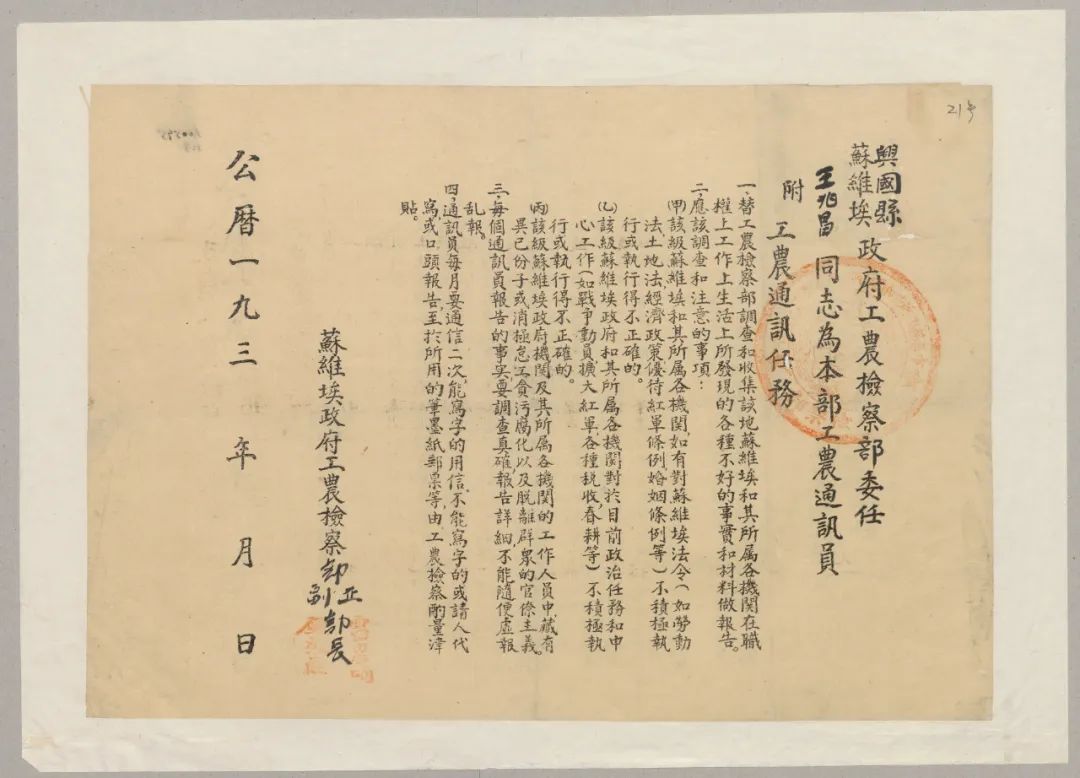 21号
興國縣
蘇維埃
政府工農檢察部委任
王兆昌同志為本部工農通訊員
附 工農通訊任務
一、替工農檢察部調查和收集該地蘇維埃和其所屬各機関在職
權上工作上生活上所發現的各種不好的事實和材料做報告。
二、應該調查和注意的事項：
㈙該級蘇維埃和其所属各機関如有對蘇維埃法令（如勞動
法土地法經濟政策優待紅軍條例婚姻條例等）不積極執
行或執行得不正確的。
㈚該級蘇維埃政府和其所属各機関對於目前政治任務和中
心工作（如戰爭動員擴大紅軍各種税收春耕等）不積極執
行或執行得不正確的。
㈛該級蘇維埃政府機関及其所属各機関的工作人員中，藏有
異己份子或消極怠工貪污腐化以及脱離群眾的官僚主義。
三、每個通訊員報告的事实，要調查真確，報告詳細，不能隨便虛報
乱報。
四、通訊員每月要通信二次，能寫字的用信，不能寫字的或請人代
寫，或口頭報告，至於所用的筆墨紙郵票等，由工農檢察酌量津
貼。
蘇維埃政府工農檢察部
正
副
部長
公曆一九三 年 月 日